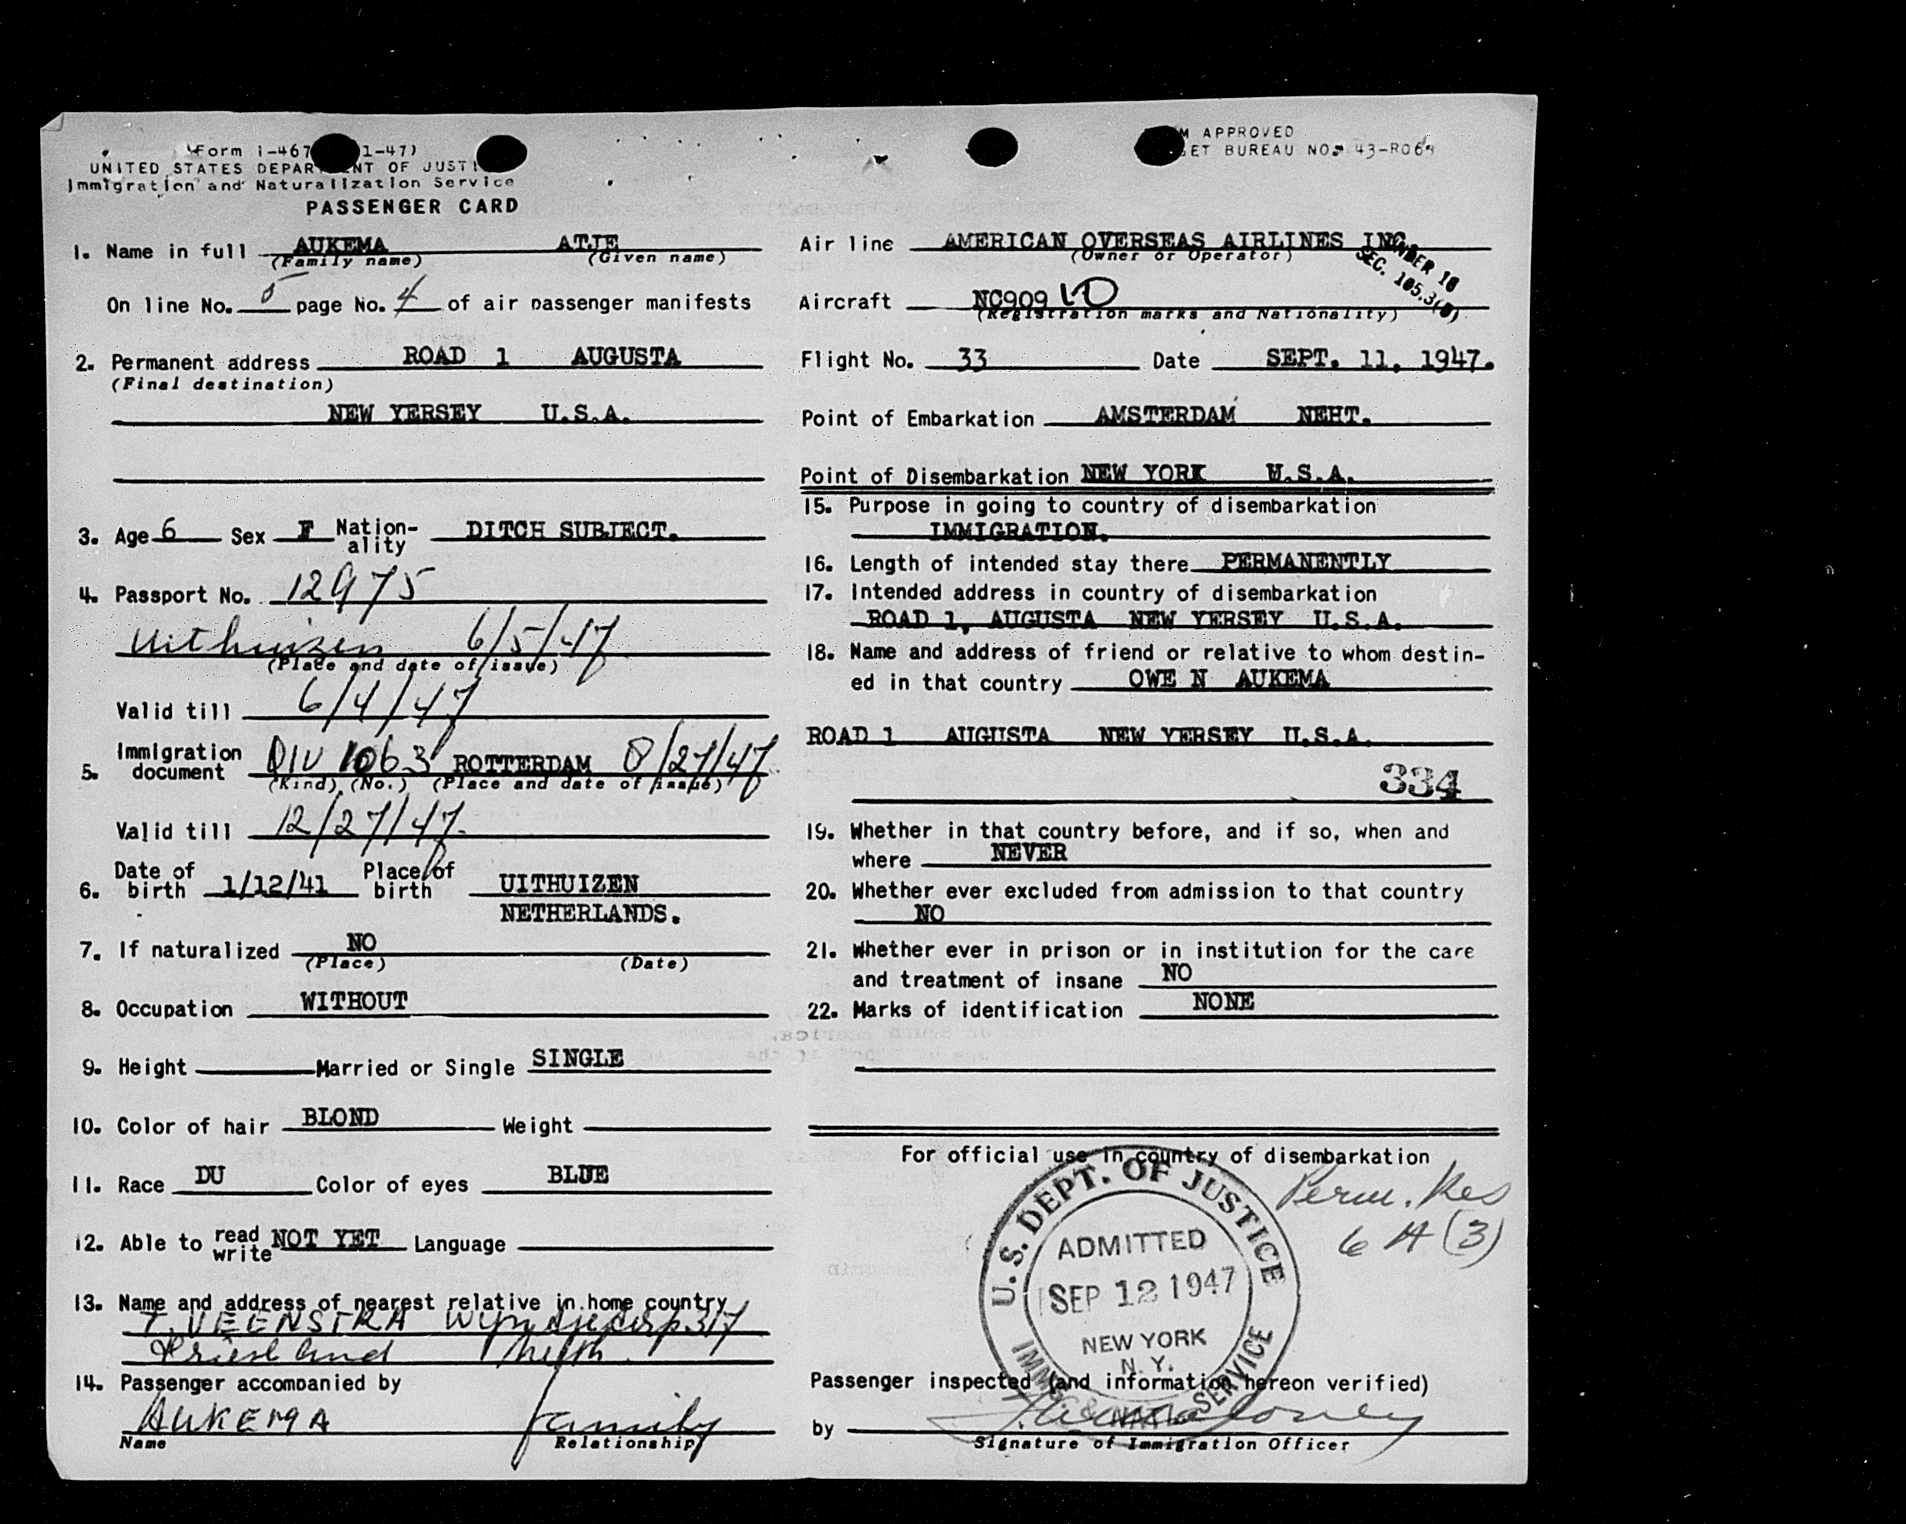 Form I-467 1-47)
UNITED STATES DEPAR NT OF JUSTI
Immigration and Naturalization Service
PASSENGER CARD
1. Name in full AUKEMA ATJE
(Family name) (Given name)
On line No. 5 page No. 4 of air passenger manifests
2. Permanent address ROAD 1 AUGUSTA
(Final destination)
NEW YERSEY U.S.A.
3. Age 6 Sex F Nation-ality DITCH SUBJECT.
4. Passport No. 12975
Uithuizen 6/5/47
(Place and date of issue)
Valid till 6/4/47
5. Immigration document QIV 1063 ROTTERDAM 8/27/47
(Kind) (No.) (Place and date of issue)
Valid till 12/27/47.
6. Date of birth 1/12/41 Place of birth UITHUIZEN
NETHERLANDS.
7. If naturalized NO
(Place) (Date)
8. Occupation WITHOUT
9. Height Married or Single SINGLE
10. Color of hair BLOND Weight
11. Race DU Color of eyes BLUE
12. Able to read write NOT YET Language
13. Name and address of nearest relative in home country
T. VEENSTRA
Friesland Neth.
14. Passenger accompanied by
AUKEMA family
Name Relationship
M APPROVED
ET BUREAU NO. 43-R064
Air line AMERICAN OVERSEAS AIRLINES INC.
(Owner or Operator)
UNDER 10
SEC. 105.3
Aircraft NC909
(Registration marks and Nationality)
Flight No. 33 Date SEPT. 11, 1947.
Point of Embarkation AMSTERDAM NEHT.
Point of Disembarkation NEW YORK U.S.A.
15. Purpose in going to country of disembarkation
IMMIGRATION.
16. Length of intended stay there PERMANENTLY
17. Intended address in country of disembarkation
ROAD 1, AUGUSTA NEW YERSEY U.S.A.
18. Name and address of friend or relative to whom destin-
ed in that country OWE N AUKEMA
ROAD 1 AUGUSTA NEW YERSEY U.S.A.
334
19. Whether in that country before, and if so, when and
where NEVER
20. Whether ever excluded from admission to that country
NO
21. Whether ever in prison or in institution for the care
and treatment of insane NO
22. Marks of identification NONE
For official use in country of disembarkation
Perm. Res
6 A (3)
U.S. DEPT. OF JUSTICE
ADMITTED
SEP 12 1947
NEW YORK
N.Y.
IMMIG. & NATL. SERVICE
Passenger inspected (and information hereon verified)
by
Signature of Immigration Officer